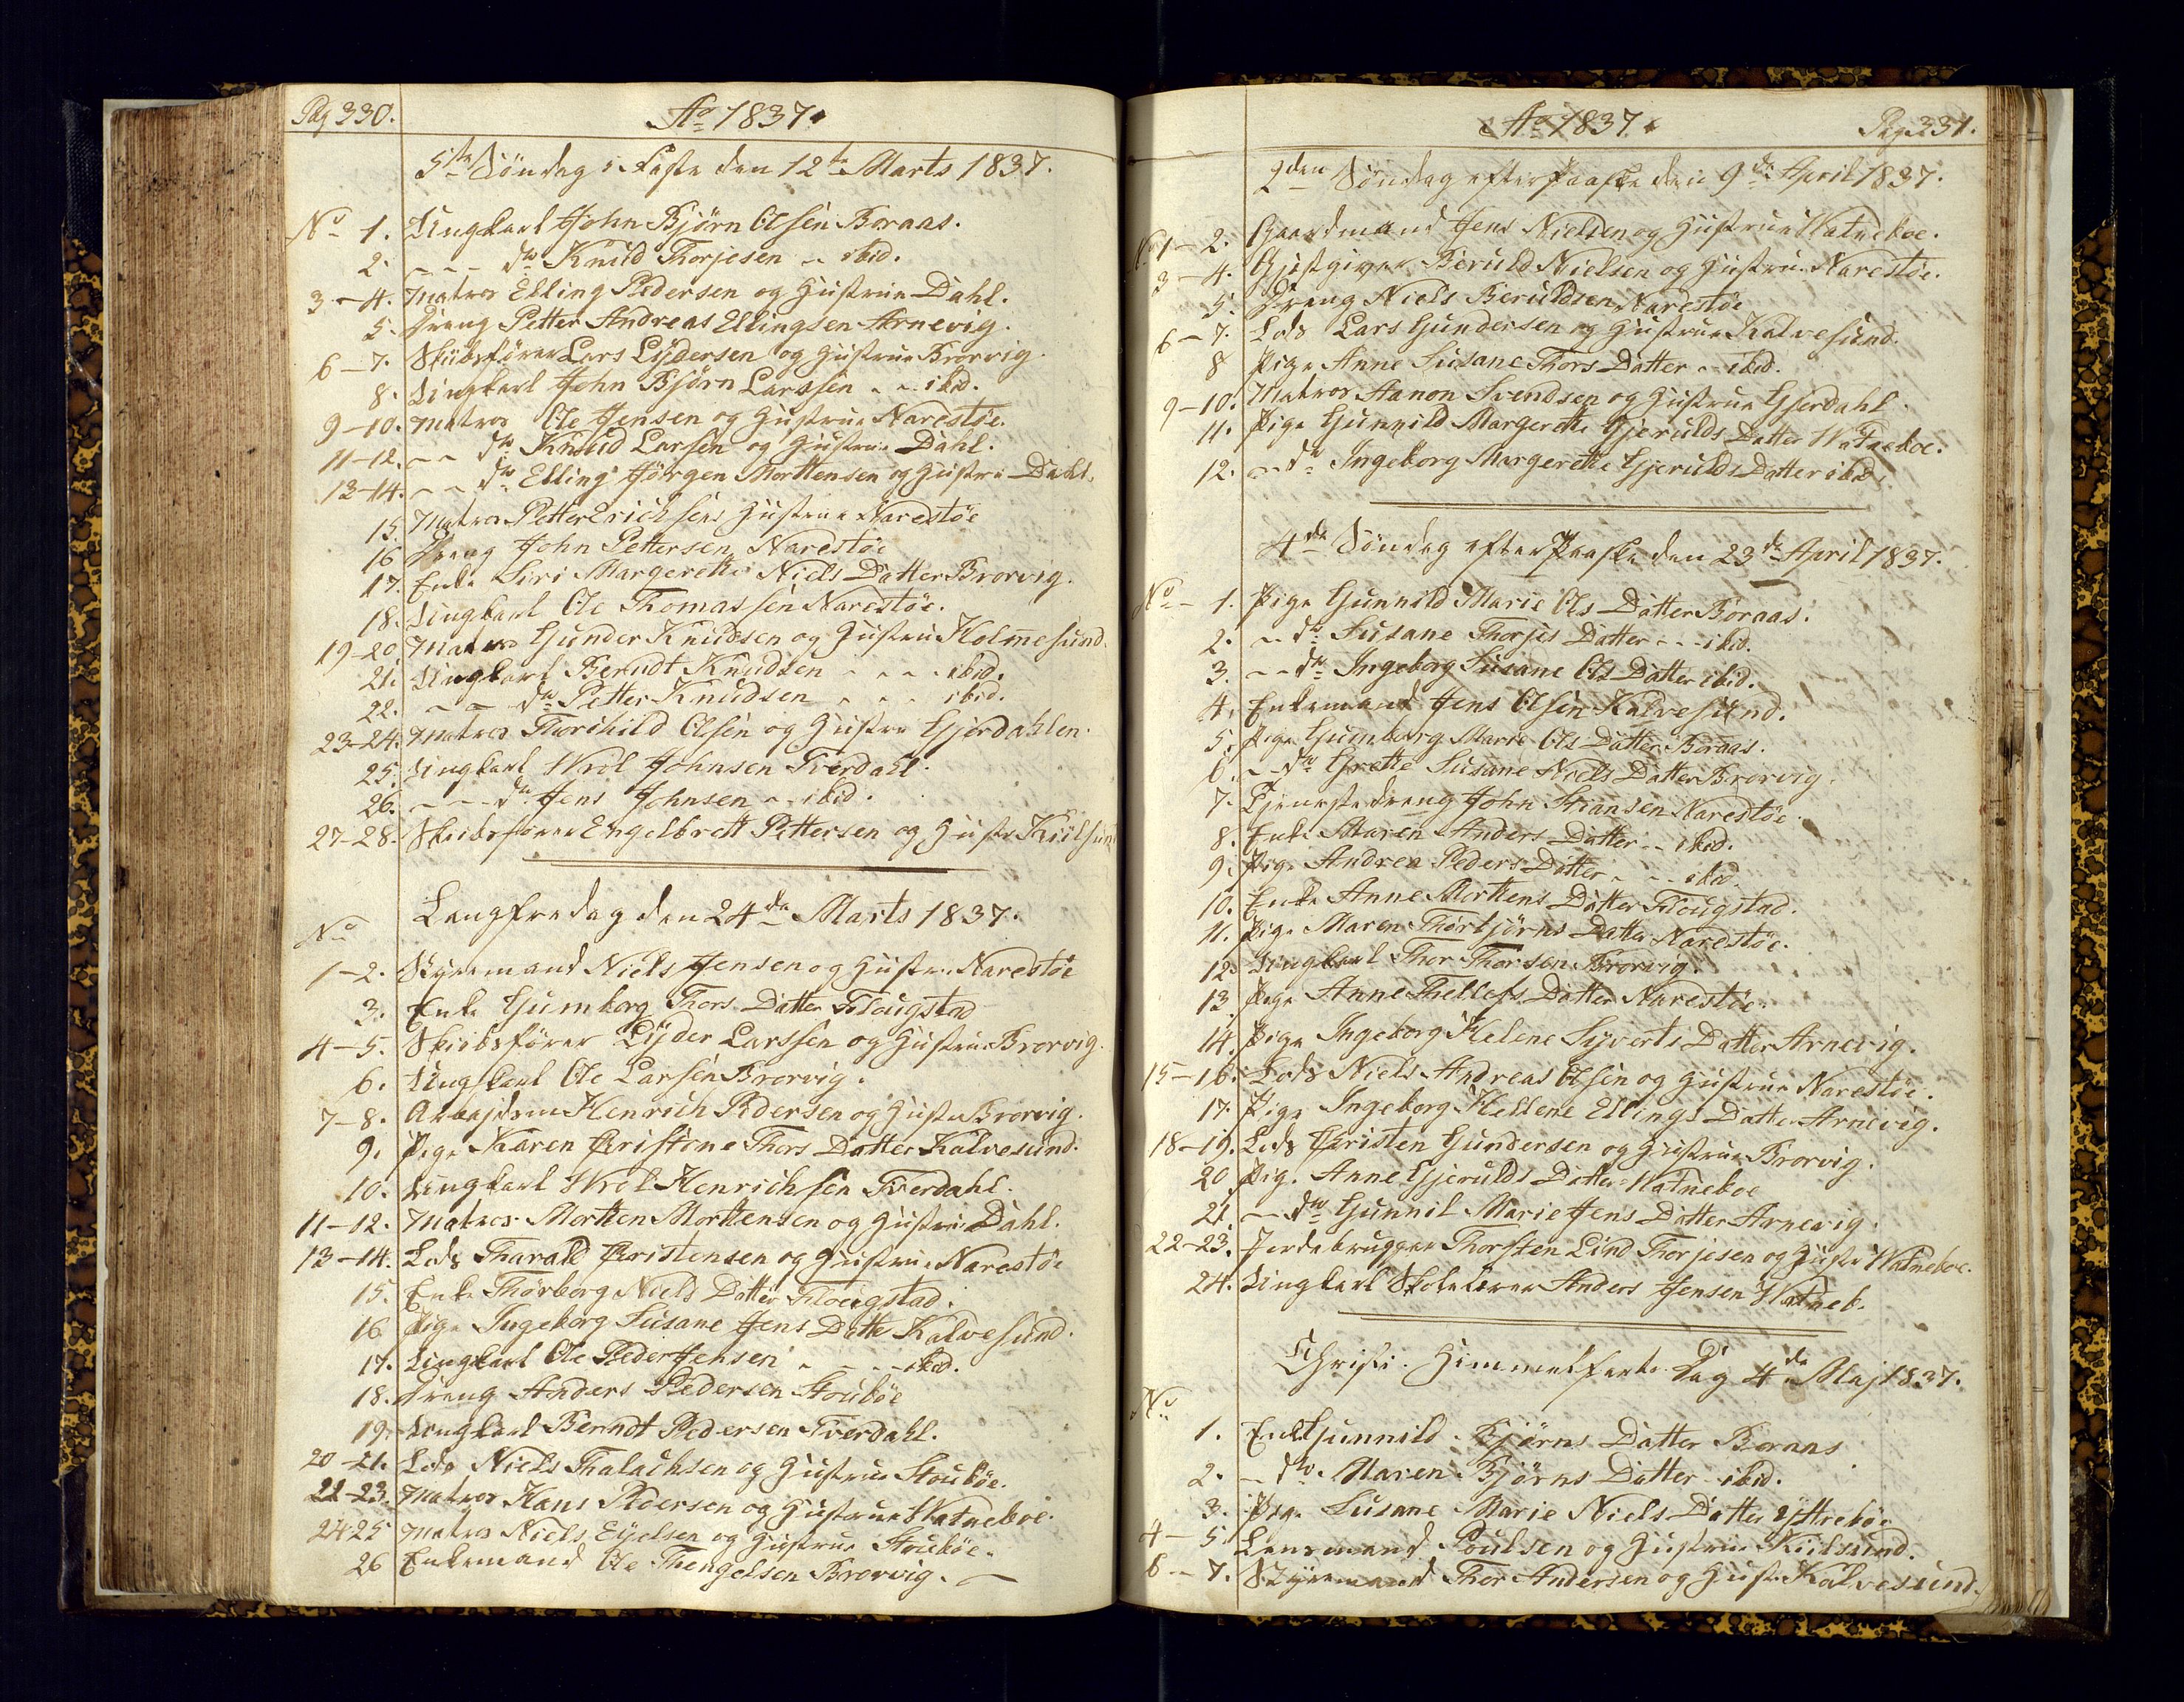 Pag 330.
Ao 1837.
5te Söndag i Faste den 12te Marts 1837.
No 1. Ungkarl John Björn Olsen Boraas.
2. - - - do Knud Thorjesen - ibid.
3-4. Matros Elling Pedersen og Hustrue Dahl.
5. Dreng Petter Andreas Ellingsen Arnevig.
6-7. Skibsfører Lars Lydersen og Hustrue Brorvig.
8. Ungkarl John Björn Larssen - - ibid.
9-10. Matros Ole Jensen og Hustrue Narestöe.
11-12. - - do Knud Larsen og Hustrue Dahl.
13-14. - - do Elling Jörgen Morttensen og Hustrue Dahl.
15. Matros Petter Erichsens Hustrue Narestöe
16 Dreng John Pettersen Narestöe
17. Enke Siri Margerethe Niels Datter Brorvig.
18. Ungkarl Ole Thomassen Narestöe.
19-20 Matros Gunder Knudsen og Hustrue Holmesund.
21. Ungkarl Berndt Knudsen - - - - ibid.
22. - - do Petter Knudsen - - - ibid.
23-24. Matros Thorkild Olsen og Hustrue Gjerdahlen.
25. Ungkarl Wrol Johnsen Tverdahl.
26. - - - do Jens Johnsen - ibid.
27-28. Skibsfører Engelbrett Pettersen og Hustr Kiilsund
Langfredag den 24de Marts 1837.
No
1-2. Styremand Niels Jensen og Hustrue Narestöe
3. Enke Gumborg Thors Datter Flougstad
4-5. Skibsfører Lyder Larssen og Hustrue Brorvig.
6. Ungkarl Ole Larsen Brorvig.
7-8. Arbejdsm Henrich Pedersen og Hustr Brorvig.
9. Pige Karen Christone Thors Datter Kalvesund.
10. Ungkarl Wrol Henrichsen Tverdahl.
11-12. Matros Mortten Morttensen og Hustrue Dahl.
13-14. Lods Tharald Christensen og Hustrue Narestöe
15. Enke Thorborg Niels Datter Flougstad.
16 Pige Ingeborg Susane Jens Datter Kalvesund.
17. Ungkarl Ole Peder Jensen - - - - ibid.
18. Dreng Anders Pedersen Stouböe
19. Ungkarl Berndt Pedersen Tverdahl.
20-21. Lods Niels Thalachsen og Hustrue Stouböe.
22-23. Matros Hans Pedersen og Hustrue Watneboe.
24-25 Matros Niels Eyelsen og Hustrue Stouböe.
26 Enkemand Ole Thengelsen Brorvig.
Ao 1837.
Pag. 331.
2den Söndag efter Paaske den 9de April 1837.
No 1-2. Gaardmand Jens Nielsen og Hustrue Watneboe.
3-4. Gjestgiver Beruld Nielsen og Hustrue Narestöe.
5. Dreng Niels Beruldsen Narestöe
6-7. Lods Lars Gundersen og Hustrue Kalvesund.
8 Pige Anne Susane Thors Datter - ibid.
9-10. Matros Aanon Svendsen og Hustrue Gjerdahl.
11. Pige Gunnild Margerethe Gjerulds Datter Watneboe.
12. - do Ingeborg Margerethe Gjerulds Datter ibid.
4de Söndag efter Paaske den 23de April 1837.
No - 1. Pige Gunnild Marie Ols Datter Boraas.
2. - do Susane Thorjes Datter - - - ibid.
3. - - do Ingeborg Susane Ols Datter ibid.
4. Enkemand Jens Olsen Kalvesund.
5. Pige Gumborg Marie Ols Datter Boraas.
6. - do Grethe Susane Niels Datter Brorvig.
7. Tjenestedreng John Stiansen Narestöe.
8. Enke Maren Anders Datter - - ibid.
9. Pige Andrea Peders Datter - - - ibid.
10. Enke Anne Morttens Datter Flougstad.
11. Pige Maren Thorbjörns Datter Narestöe.
12. Ungkarl Thor Thorsen Brorvig.
13 Pige Anne Thellefs Datter Narestöe.
14. Pige Ingeborg Helene Syverts Datter Arnevig.
15-16. Lods Niels Andreas Olsen og Hustrue Narestöe.
17. Pige Ingeborg Hellene Ellings Datter Arnevig.
18-19. Lods Christen Gundersen og Hustrue Brorvig.
20 Pige Anne Gjerulds Datter Watneboe
21 - do Gunnil Marie Jens Datter Arnevig.
22-23. Jordebrugger Thorsten Lind Thorjesen og Hustr Watneboe.
24. Ungkarl Skolelærer Anders Jensen Watneb.
Christi Himmelfarts Dag 4de Maj 1837.
No
1. Enke Gunnild Björns Datter Boraas
2. - do Maren Björns Datter - ibid.
3. Pige Susane Marie Niels Datter Yttreböe
4-5. Lensmand Poulsen og Hustrue Kiilsund.
6-7. Styremand Thor Andersen og Hustr Kalvesund.